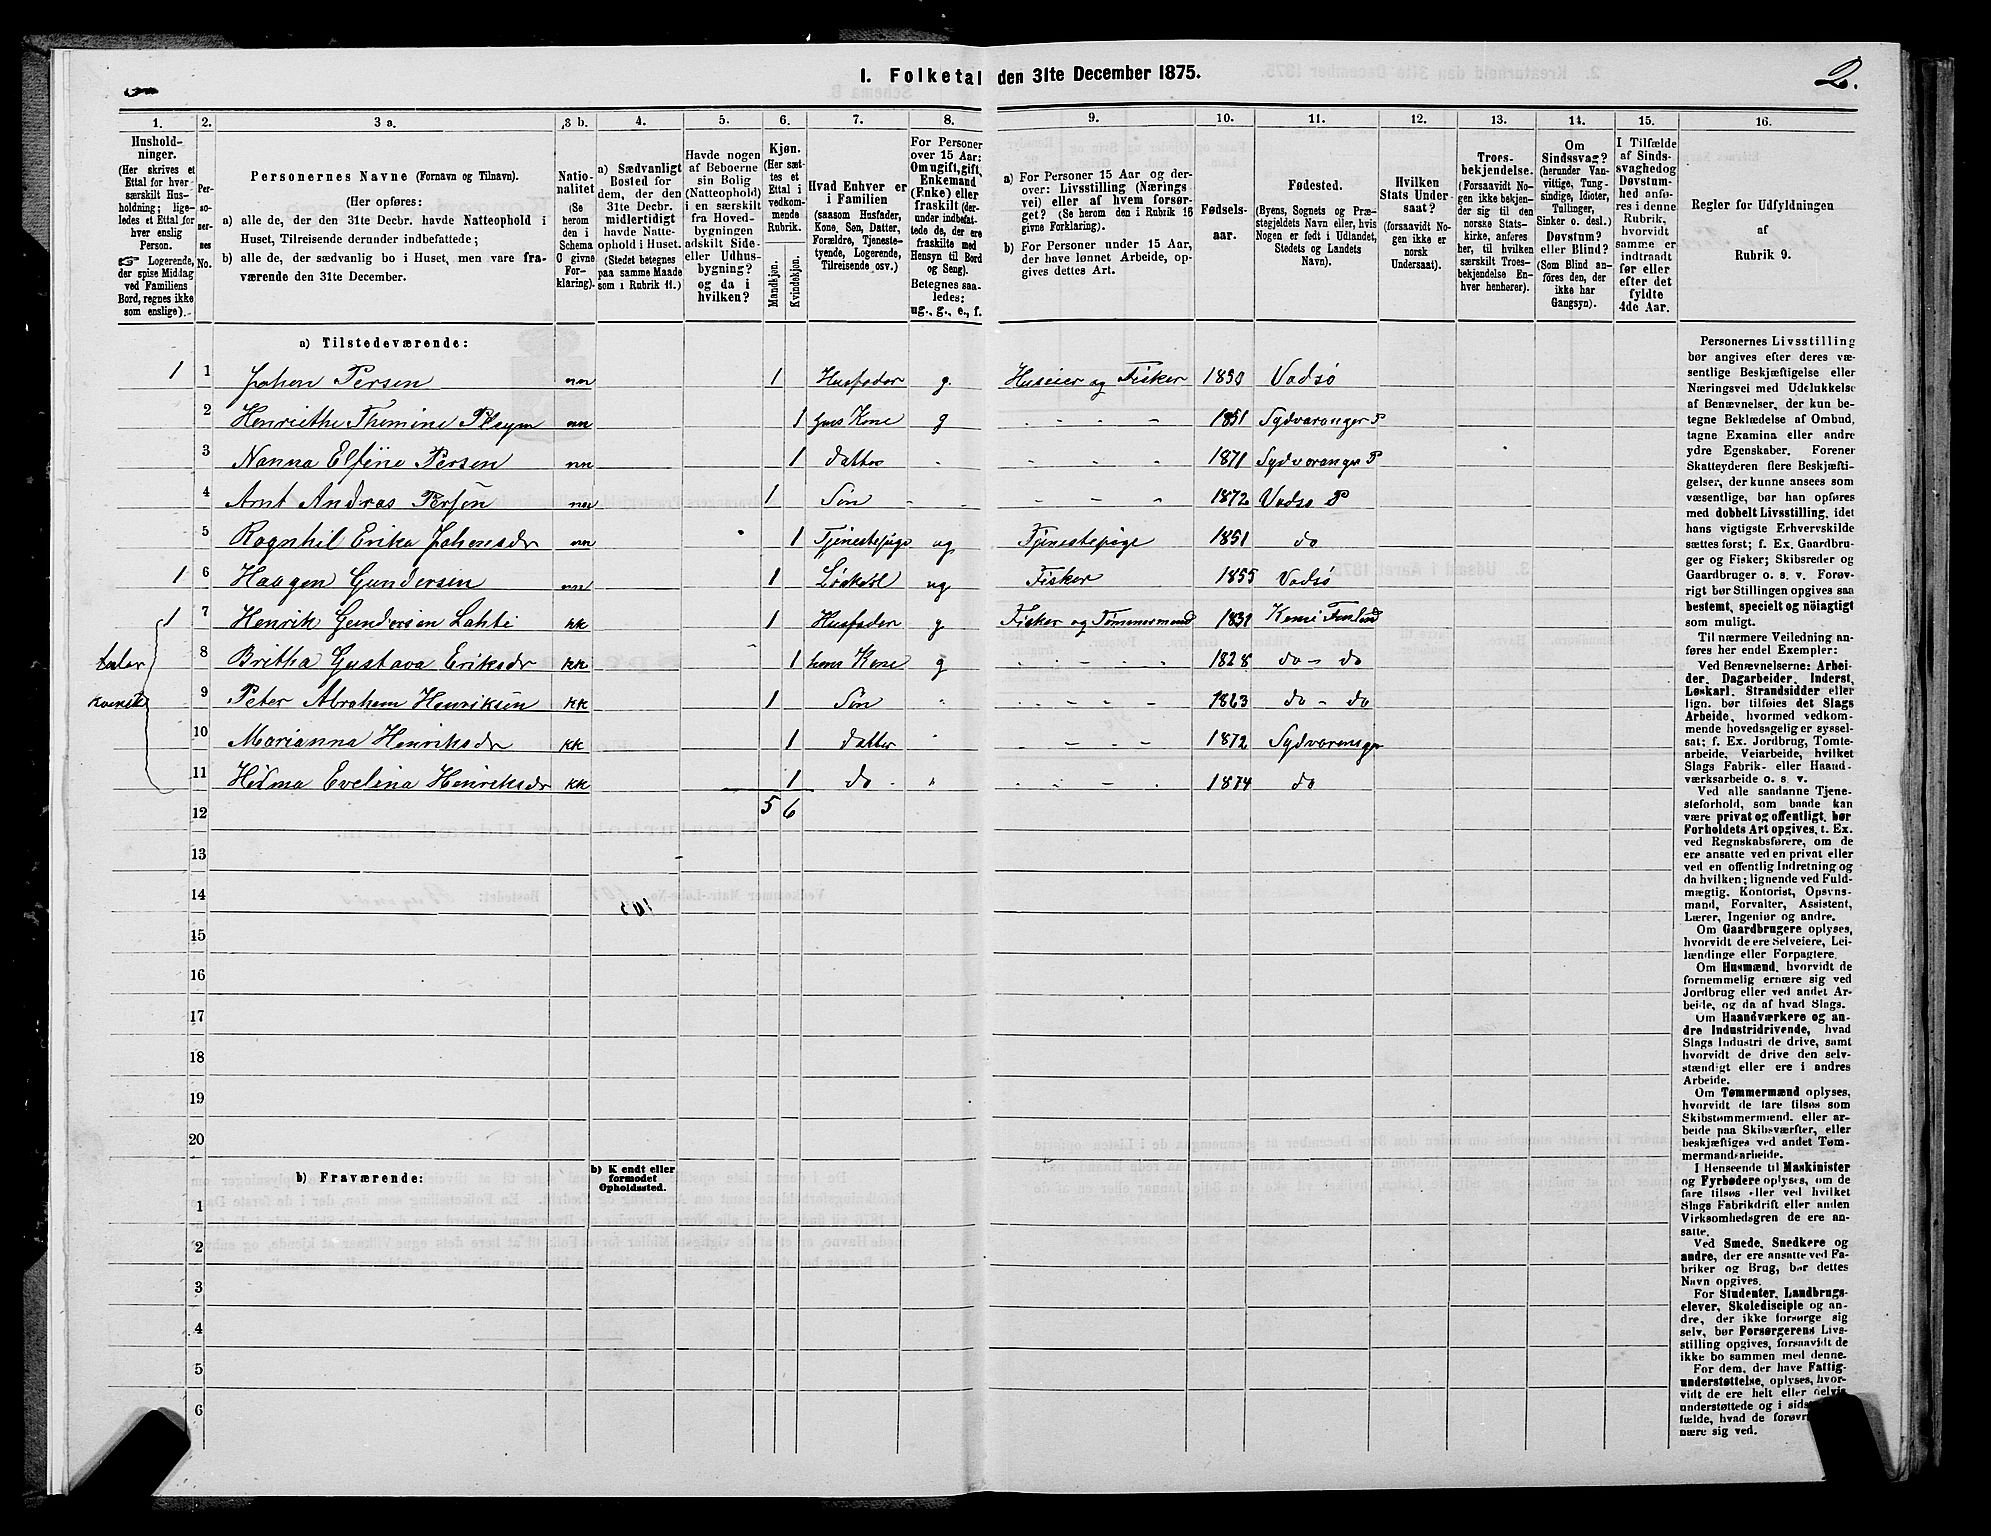 1. Folketal den 31te December 1875.
2.
1.
Hushold-
ninger.
(Her skrives et
Ettal for hver
særskilt Hus-
holdning; lige-
ledes et Ettal for
hver enslig
Person.
☞ Logerende,
der spise Middag
ved Familiens
Bord, regnes ikke
som enslige).
2.
Per-
so-
ner-
nes
No.
3 a.
Personernes Navne (Fornavn og Tilnavn).
(Her opføres:
a) alle de, der den 31te Decbr. havde Natteophold i
Huset, Tilreisende derunder indbefattede;
b) alle de, der sædvanlig bo i Huset, men vare fra-
værende den 31te December.
3 b.
Natio-
nalitet
(Se
herom
den i
Schema
C givne
For-
klaring).
4.
a) Sædvanligt
Bosted for
dem, der den
31te Decbr.
midlertidigt
havde Natte-
ophold i Huset.
(Stedet betegnes
paa samme Maade
som i Rubrik 11.)
5.
Havde nogen
af Beboerne
sin Bolig
(Natteophold)
i en særskilt
fra Hoved-
bygningen
adskilt Side-
eller Udhus-
bygning?
og da i
hvilken?
6.
Kjøn.
(Her sæt-
tes et
Ettal i
vedkom-
mende
Rubrik.
Mandkjøn.
Kvindekjøn.
7.
Hvad Enhver er
i Familien
(saasom Husfader,
Kone, Søn, Datter,
Forældre, Tjeneste-
tyende, Logerende,
Tilreisende osv.)
8.
For Personer
over 15 Aar:
Om ugift, gift,
Enkemand
(Enke) eller
fraskilt (der-
under indbefat-
tede de, der ere
fraskilte med
Hensyn til Bord
og Seng).
Betegnes saa-
ledes:
ug., g., e., f.
9.
a) For Personer 15 Aar og der-
over: Livsstilling (Nærings-
vei) eller af hvem forsør-
get? (Se herom den i Rubrik 16
givne Forklaring).
b) For Personer under 15 Aar,
der have lønnet Arbeide, op-
gives dettes Art.
10.
Fødsels-
aar.
11.
Fødested.
(Byens, Sognets og Præ-
stegjeldets Navn eller, hvis
Nogen er født i Udlandet,
Stedets og Landets
Navn).
12.
Hvilken
Stats Under-
saat?
(forsaavidt No-
gen ikke er
norsk
Undersaat).
13.
Troes-
bekjendelse.
(Forsaavidt No-
gen ikke bekjen-
der sig til den
norske Stats-
kirke, anføres
her, til hvilken
særskilt Troes-
bekjendelse En-
hver henhører).
14.
Om
Sindssvag?
(herunder Van-
vittige, Tung-
sindige, Idioter,
Tullinger,
Sinker o. desl.)
Døvstum?
eller Blind?
(Som Blind an-
føres den, der
ikke har
Gangsyn).
15.
I Tilfælde
af Sinds-
svaghed og
Døvstum-
hed anfø-
res i denne
Rubrik,
hvorvidt
samme er
indtraadt
før eller
efter det
fyldte
4de Aar.
16.
Regler for Udfyldningen
af
Rubrik 9.
a) Tilstedeværende:
1 1 Johon Persen nn 1 Husfader g. Huseier og Fisker 1850 Vadsø
2 Henriethe Thomine nn 1 hans Kone g - - - 1851 Sydvaranger P
3 Nanna Elfine Persen nn 1 datter - 1871 Sydvaranger P
4 Arnt Andras Persen nn 1 Søn - - - - 1872 Vadsø P
5 Ragnhil Erika Johansdr nn 1 Tjenestepige ug Tjenestepige 1851 do
1 6 Haagen Gundersen nn 1 ug Fisker 1855 Vadsø
1 7 Henrik Gundersen Lahti kk 1 Husfader g Fisker og Tømmermand 1831 Kemi Finland
taler 8 Britha Gustava Eriksdr kk 1 hans Kone g - - - - 1828 do - do
kvensk 9 Peter Abraham Henriksen kk 1 Søn " - - - - 1863 do - do
10 Marianna Henriksdr kk 1 datter " - - - - 1872 Sydvaranger
11 Hilma Evelina Henriksdr kk 1 do - " - - - - 1874 do
12 5 6
13
14
15
16
17
18
19
20
b) Fraværende:
b) Kjendt eller
formodet
Opholdssted.
1
2
3
4
5
6
Personernes Livsstilling
bør angives efter deres væ-
sentlige Beskjæftigelse eller
Næringsvei med Udelukkelse
af Benævnelser, der kun be-
tegne Beklædelse af Ombud,
tagne Examina eller andre
ydre Egenskaber. Forener
Skatteyderen flere Beskjæfti-
gelser, der kunne ansees som
væsentlige, bør han opføres
med dobbelt Livsstilling, idet
hans vigtigste Erhvervskilde
sættes først; f. Ex. Gaardbru-
ger og Fisker; Skibsreder og
Gaardbruger o. s. v. Forøv-
rigt bør Stillingen opgives saa
bestemt, specielt og nöiagtigt
som muligt.
Til nærmere Veiledning an-
føres her endel Exempler:
Ved Benævnelserne: Arbei-
der, Dagarbeider, Inderst,
Løskarl, Strandsidder eller
lign. bør tilføies det Slags
Arbeide, hvormed vedkom-
mende hovedsagelig er syssel-
sat; f. Ex. Jordbrug, Tomte-
arbeide, Veiarbeide, hvilket
Slags Fabrik- eller Haand-
værksarbeide o. s. v.
Ved alle saadanne Tjene-
steforhold, som baade kan
være privat og offentligt, bør
Forholdets Art opgives, t. Ex.
ved Regnskabsførere, om de
ere ansatte ved en privat eller
ved en offentlig Indretning og
da hvilken; lignende ved Fuld-
mægtig, Kontorist, Opsyns-
mand, Forvalter, Assistent,
Lærer, Ingeniør og andre.
Om Gaardbrugere oplyses,
hvorvidt de ere Selveiere, Lei-
lændinge eller Forpagtere.
Om Husmænd, hvorvidt de
fornemmelig ernære sig ved
Jordbrug eller ved andet Ar-
beide, og da af hvad Slags.
Om Haandværkere og an-
dre Industridrivende, hvad
Slags Industri de drive, samt
hvorvidt de drive den selv-
stændigt eller ere i andres
Arbeide.
Om Tømmermænd oplyses,
hvorvidt de fare tilsøs som
Skibstømmermænd, eller ar-
beide paa Skibsværfter, eller
beskjæftiges ved andet Tøm-
mermandsarbeide.
I Henseende til Maskinister
og Fyrbødere oplyses, om de
fare tilsøs eller ved hvilket
Slags Fabrikdrift eller anden
Virksomhedsgren de ere an-
satte.
Ved Smede, Snedkere og
andre, der ere ansatte ved Fa-
briker og Brug, bør dettes
Navn opgives.
For Studenter, Landbrugs-
elever, Skoledisciple og an-
dre, der ikke forsørge sig
selv, bør Forsørgerens Livs-
stilling opgives, forsaavidt de
ikke bo sammen med denne.
For dem, der have Fattig-
understøttelse, oplyses, hvor-
vidt de ere helt eller delvis
understøttede og i
fælde, hvad de
nære sig ved.